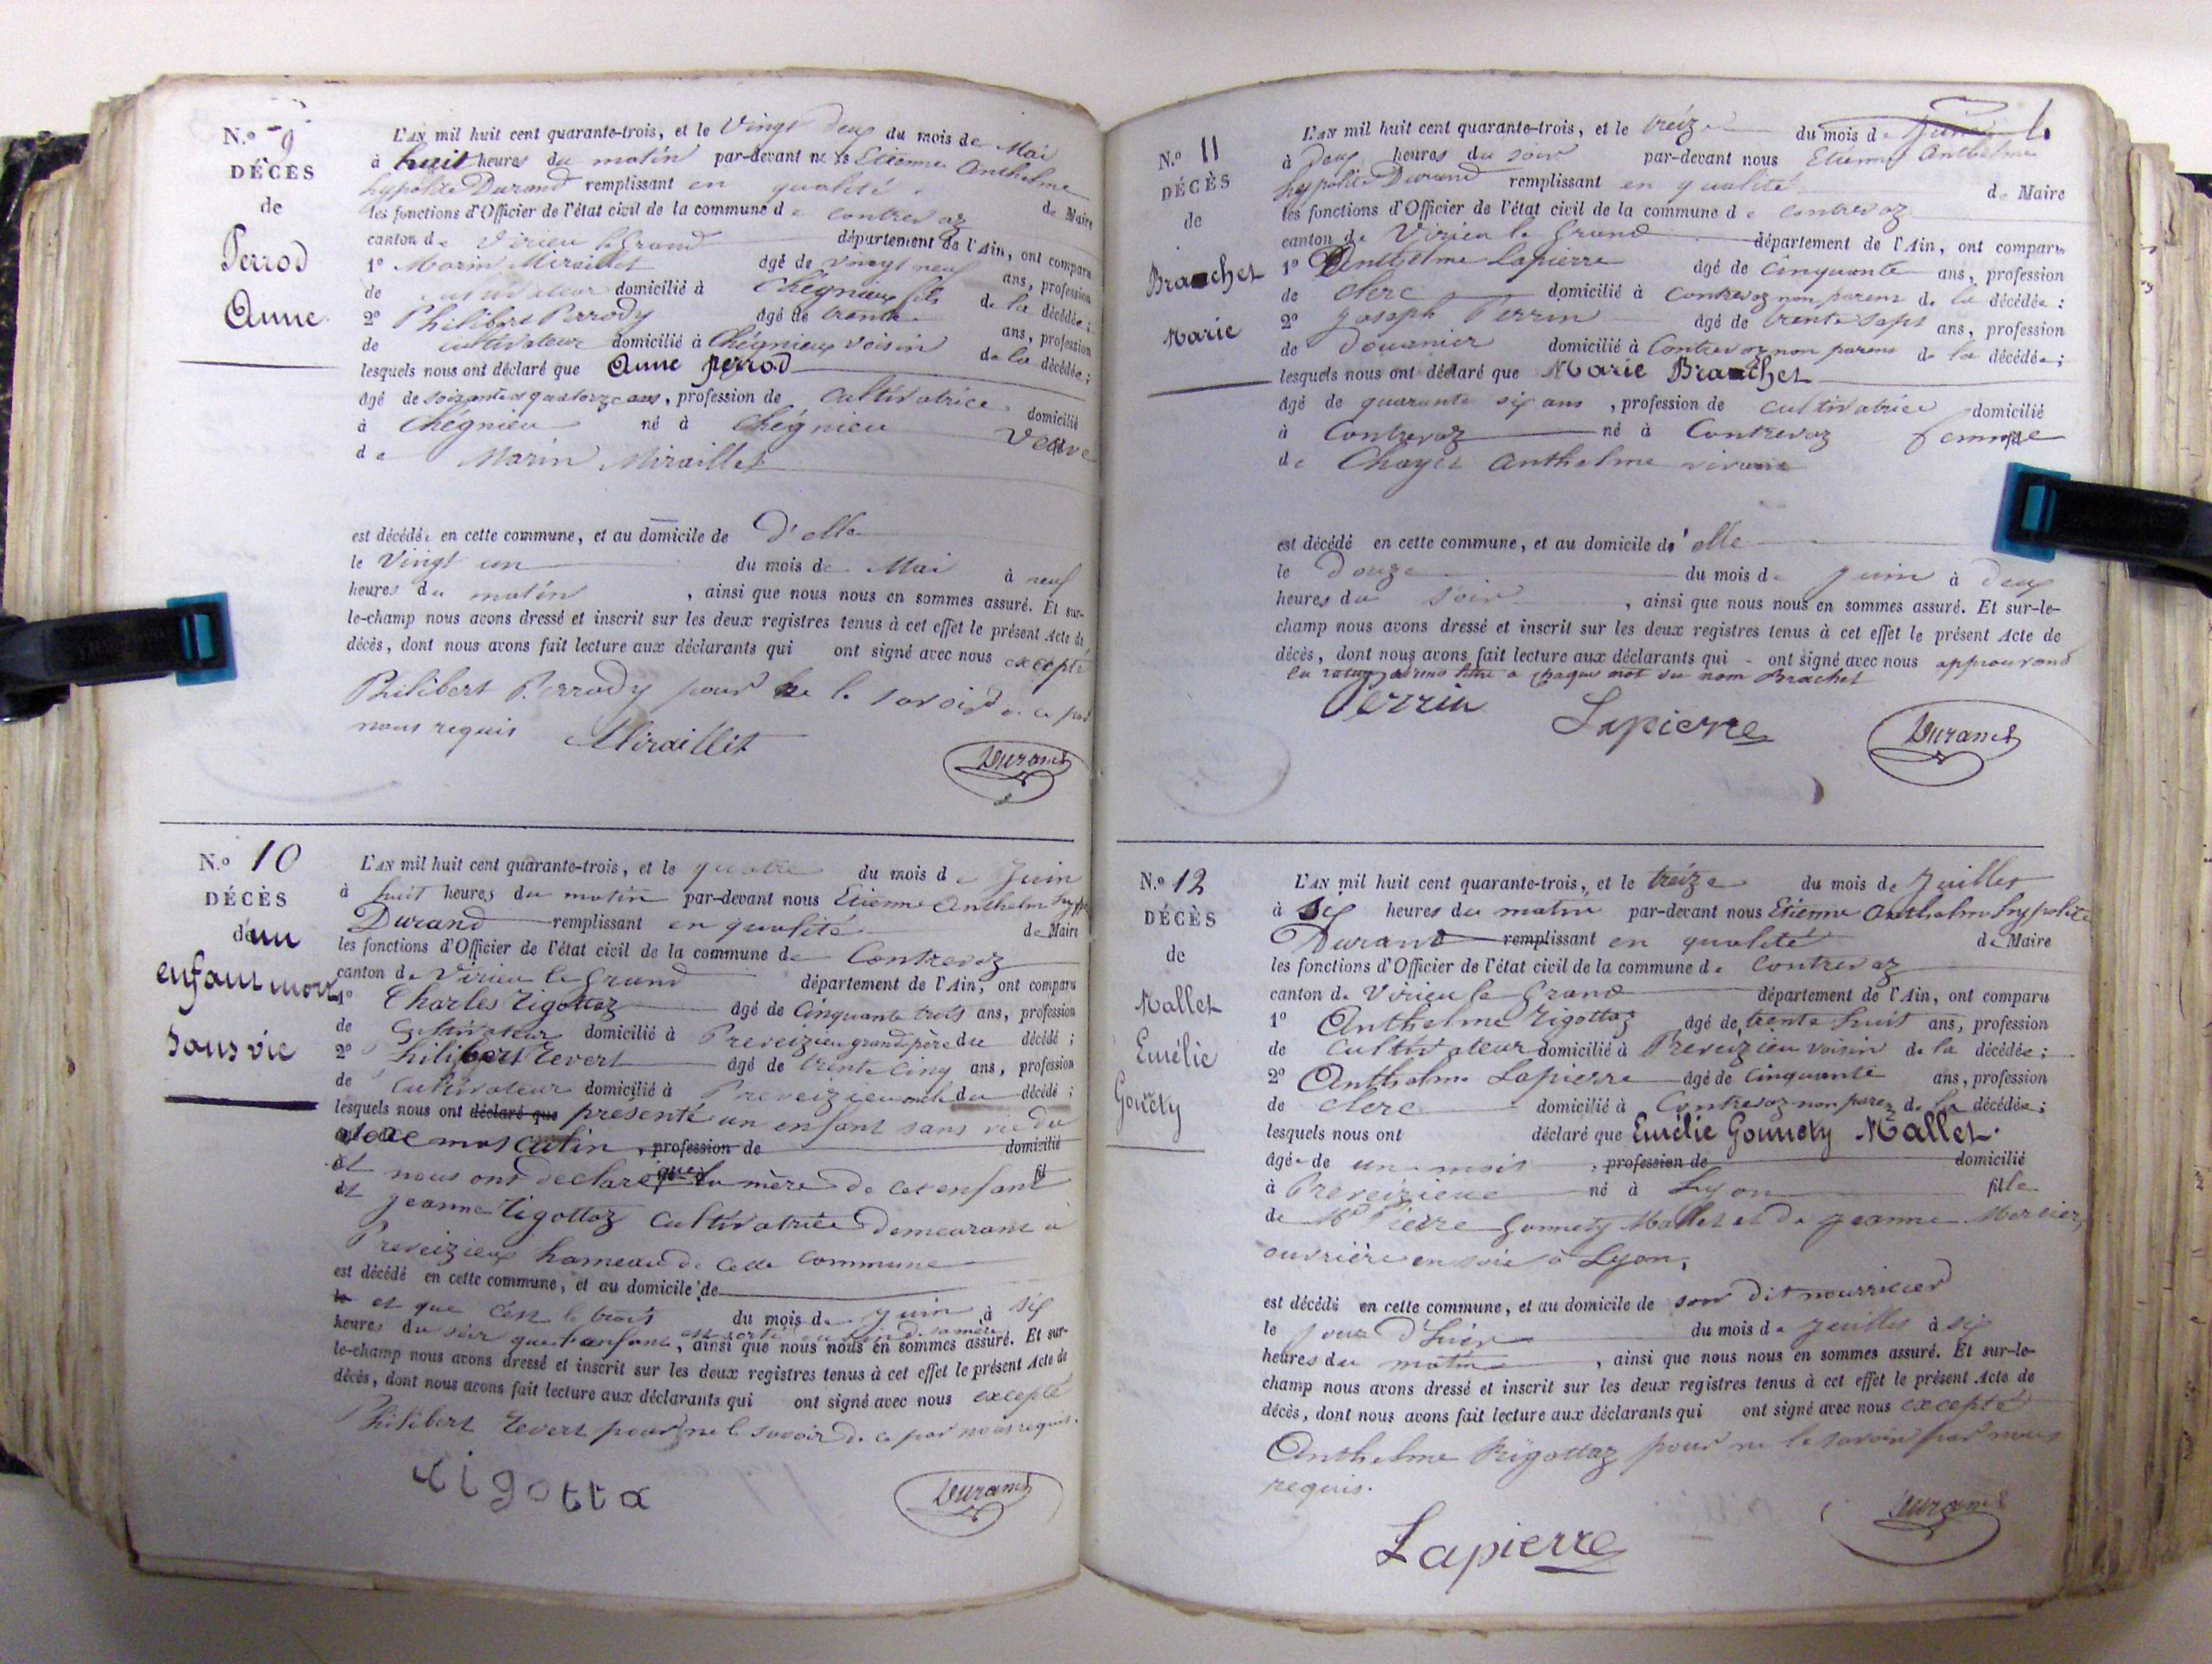 N.o 9
DÉCÈS
de
Perrod
Anne
L'AN mil huit cent quarante-trois, et le Vingt deux du mois de Mai
à huit heures du matin par-devant nous Etienne Anthelme
hypolite Durand remplissant en qualité de Maire
les fonctions d'Officier de l'état civil de la commune de Contrevoz
canton de Virieu le Grand département de l'Ain, ont comparu
1o Marin Miraillet âgé de vingt neuf ans, profession
de cultivateur domicilié à Chégnieu fils de la décédée;
2o Philibert Perrody âgé de trente ans, profession
de cultivateur domicilié à Chégnieu voisin de la décédée;
lesquels nous ont déclaré que Anne perrod
âgé de soixante et quatorze ans, profession de cultivatrice domicilié
à Chégnieu né à Chégnieu Veuve
de Marin Miraillet
est décédée en cette commune, et au domicile de D'elle
le Vingt un du mois de Mai à neuf
heures du matin, ainsi que nous nous en sommes assuré. Et sur-
le-champ nous avons dressé et inscrit sur les deux registres tenus à cet effet le présent Acte de
décès, dont nous avons fait lecture aux déclarants qui ont signé avec nous excepté
Philibert Perrody pour ne le savoir de ce par
nous requis Miraillet
Durand
N.o 10
DÉCÈS
de un
enfant mort
sans vie
L'AN mil huit cent quarante-trois, et le quatre du mois de Juin
à huit heures du matin par-devant nous Etienne Anthelme hyppo
Durand remplissant en qualité de Maire
les fonctions d'Officier de l'état civil de la commune de Contrevoz
canton de Virieu le Grand département de l'Ain, ont comparu
1o Charles Rigottaz âgé de Cinquante trois ans, profession
de Cultivateur domicilié à Preveizieu grand père du décédé;
2o Philibert Revert âgé de trente cinq ans, profession
de Cultivateur domicilié à Preveizieu oncle du décédé;
lesquels nous ont déclaré que presenté un enfant sans vie du
sexe masculin, profession de domicilié
et nous ont declaré que la mère de cet enfant fil
et Jeanne Rigottaz cultivatrice demeurant à
Preveizieu hameau de cette commune
est décédé en cette commune, et au domicile de
le et que c'est le trois du mois de Juin à six
heures du soir que l'enfant est sorti du sein de sa mère, ainsi que nous nous en sommes assuré. Et sur-
le-champ nous avons dressé et inscrit sur les deux registres tenus à cet effet le présent Acte de
décès, dont nous avons fait lecture aux déclarants qui ont signé avec nous excepté
Philibert Revert pour ne le savoir de ce par nous requis.
rigotta
Durand
N.o 11
DÉCÈS
de
Brachet
Marie
L'AN mil huit cent quarante-trois, et le treize du mois de Juin
à deux heures du soir par-devant nous Etienne Anthelme
hypolite Durand remplissant en qualité de Maire
les fonctions d'Officier de l'état civil de la commune de Contrevoz
canton de Virieu le Grand département de l'Ain, ont comparu
1o Anthelme Lapierre âgé de cinquante ans, profession
de clerc domicilié à Contrevoz non parent de la décédée:
2o Joseph Perrin âgé de trente sept ans, profession
de douanier domicilié à Contrevoz non parent de la décédée;
lesquels nous ont déclaré que Marie Brachet
âgé de quarante six ans, profession de cultivatrice domicilié
à Contrevoz né à Contrevoz femme
de Chayet Anthelme vivant
est décédé en cette commune, et au domicile d'elle
le Douze du mois de Juin à deux
heures du soir, ainsi que nous nous en sommes assuré. Et sur-le-
champ nous avons dressé et inscrit sur les deux registres tenus à cet effet le présent Acte de
décès, dont nous avons fait lecture aux déclarants qui ont signé avec nous approuvant
à chaque mot du nom Brachet
Perrin
Lapierre
Durand
N.o 12
DÉCÈS
de
Mallet
Emélie
Gonnety
L'AN mil huit cent quarante-trois, et le treize du mois de Juillet
à Six heures du matin par-devant nous Etienne Anthelme hypolite
Durand remplissant en qualité de Maire
les fonctions d'Officier de l'état civil de la commune de Contrevoz
canton de Virieu le Grand département de l'Ain, ont comparu
1o Anthelme Rigottaz âgé de trente huit ans, profession
de cultivateur domicilié à Preveizieu voisin de la décédée;
2o Anthelme Lapierre âgé de cinquante ans, profession
de clerc domicilié à Contrevoz non parent de la décédée;
lesquels nous ont déclaré que Emélie Gonnety Mallet.
âgée de un mois, profession de domicilié
à Preveizieu né à Lyon fille
de Mr Pierre Gonnety Mallet et de Jeanne Mercier
ouvrière en soie à Lyon,
est décédé en cette commune, et au domicile de son dit nourricier
le jour d'hier du mois de Juillet à six
heures du matin, ainsi que nous nous en sommes assuré. Et sur-le-
champ nous avons dressé et inscrit sur les deux registres tenus à cet effet le présent Acte de
décès, dont nous avons fait lecture aux déclarants qui ont signé avec nous excepté
Anthelme Rigottaz pour ne le savoir par nous
requis.
Lapierre
Durand